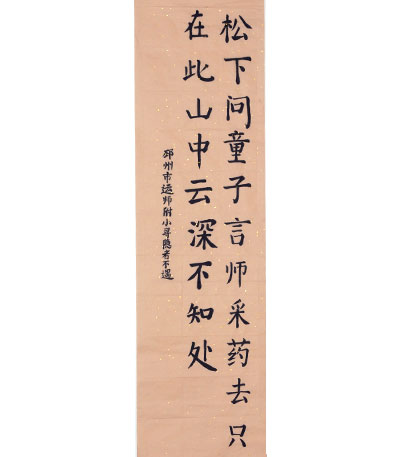 松下问童子言师采药去只
在此山中云深不知处
邳州市运师附小寻隐者不遇